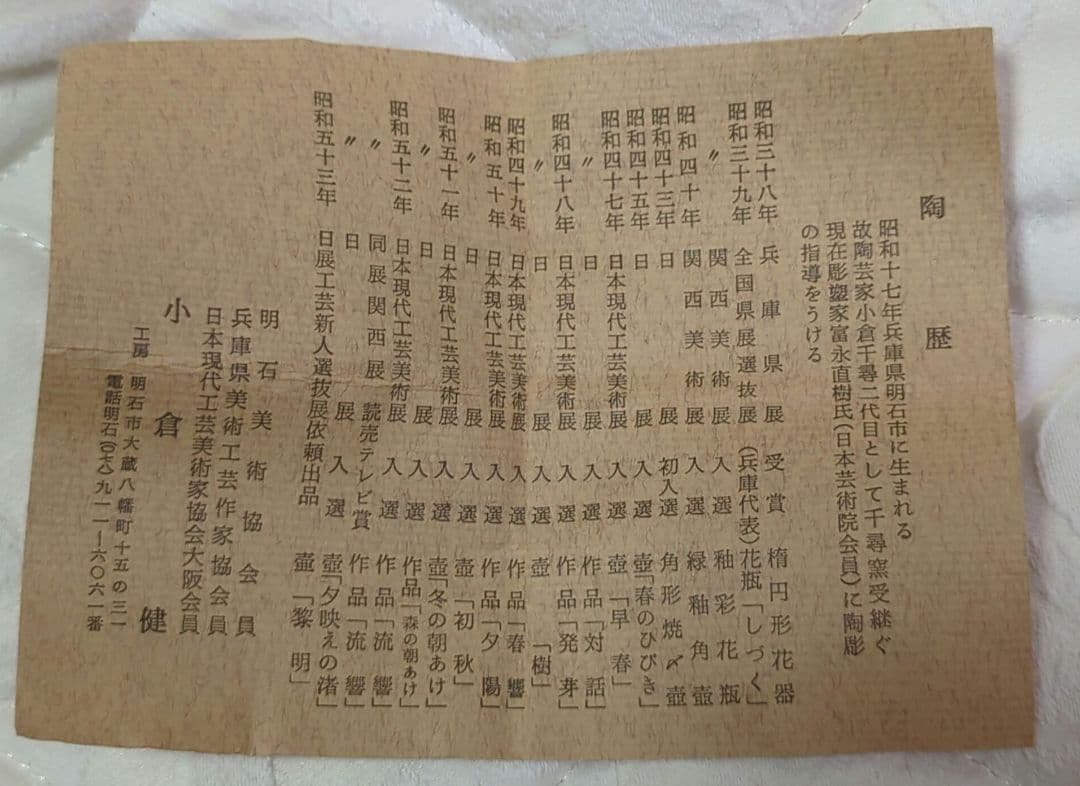 陶歴
昭和十七年兵庫県明石市に生まれる
故陶芸家小倉千尋二代目として千尋窯受継ぐ
現在彫塑家富永直樹氏(日本芸術院会員)に陶彫
の指導をうける
昭和三十八年 兵庫県展 受賞 楕円形花器
昭和三十九年 全国県展選抜展(兵庫代表)花瓶「しづく」
〃 関西美術展 入選 釉彩花瓶
昭和四十年 関西美術展 入選 緑釉角壺
昭和四十三年 日展 初入選 角形焼〆壺
昭和四十五年 日展 入選 壺「春のひびき」
昭和四十七年 日本現代工芸美術展 入選 壺「早春」
〃 日展 入選 作品「対話」
昭和四十八年 日本現代工芸美術展 入選 作品「発芽」
〃 日展 入選 壺「樹」
昭和四十九年 日本現代工芸美術展 入選 作品「春響」
昭和五十年 日本現代工芸美術展 入選 作品「夕陽」
〃 日展 入選 壺「初秋」
昭和五十一年 日本現代工芸美術展 入選 壺「冬の朝あけ」
〃 日展 入選 作品「森の朝あけ」
昭和五十二年 日本現代工芸美術展 入選 作品「流響」
〃 同展関西展 読売テレビ賞 作品「流響」
〃 日展 入選 壺「夕映えの渚」
昭和五十三年 日展工芸新人選抜展依頼出品 壷「黎明」
明石美術協会員
兵庫県美術工芸作家協会員
日本現代工芸美術家協会大阪会員
小倉健
工房 明石市大蔵八幡町十五の三一
電話明石(〇七八)九一一-六〇六一番